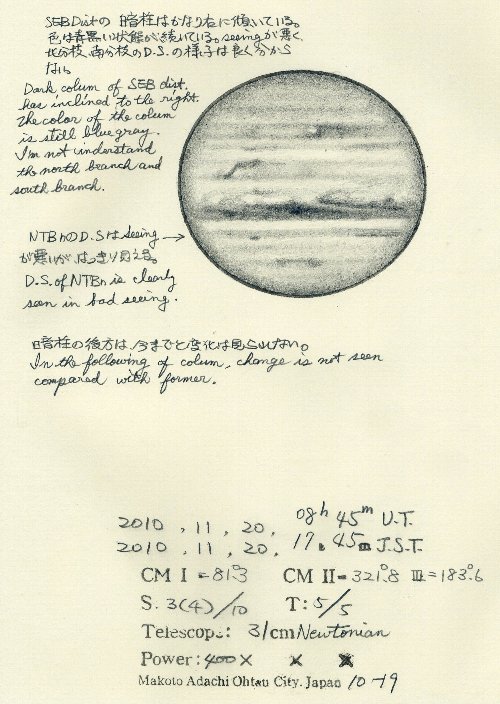 SEB Distの 暗柱はかなり右に傾いている。
色は青黒い状態が続いている。seeingが悪く、
北分枝、南分枝のD.S.の様子は良く分から
ない。
Dark colum of SEB dist.
has inclined to the right.
The color of the colum
is still blue gray.
I'm not understand
the north branch and
south branch.
NTBnのD.Sはseeing →
が悪いが、はっきり見える。
D.S. of NTBn is clearly
seen in bad seeing.
暗柱の後方は、今までと変化は見られない。
In the following of colum, change is not seen
compared with former.
2010 , 11 , 20, 08h 45m U.T.
2010 , 11 , 20, 17h 45m J.S.T.
CM I = 81.°3 CM II = 321.°8 III = 183.°6
S. 3(4)/10 T: 5/5
Telescope: 31cm Newtonian
Power: 400× × ×
Makoto Adachi Ohtsu City. Japan 10-19